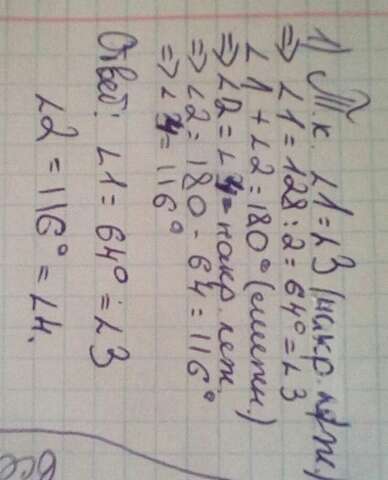 1) Т.к. ∠1=∠3 (накр. леж.)
=> ∠1=128:2=64°=∠3
∠1+∠2=180° (смежн.)
=> ∠2=∠4=накр. леж.
=> ∠2=180-64=116°
=> ∠4=116°
Ответ: ∠1=64°=∠3
∠2=116°=∠4.
все